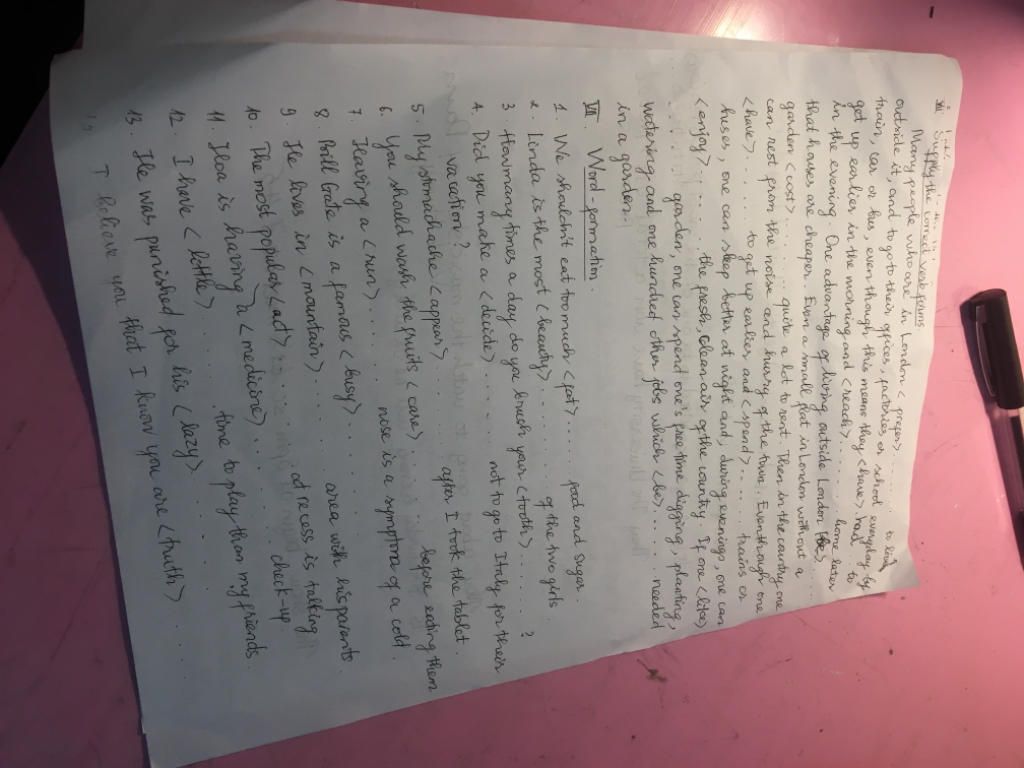 Supply the correct verb forms
Many people who are in London <prefer>........ to
outside it, and to go to their offices, factories or school everyday by
train, car or bus, even though this means they <have> to
get up earlier in the morning and <reach>........ home later
in the evening. One advantage of living outside London
that houses are cheaper. Even a small flat in London without a
garden <cost>....... quite a lot to rent. Then in the country, one
can rest from the noise and hurry of the town. Even though one
<have>...... to get up earlier and <spend>..... trains or
buses, one can sleep better at night and, during evenings, one can
<enjoy>....... the fresh, clean air of the country. If one <like>
...... garden, one can spend one's free time digging, planting,
watering and one hundred other jobs which <be>..... needed
in a garden.
VII. Word-formation.
1. We shouldn't eat too much <fat>...... food and sugar.
2. Linda is the most <beauty>....... of the two girls
3. How many times a day do you brush your <tooth>.......?
4. Did you make a <decide>...... not to go to Italy for their
vacation?
5. My stomachache <appear>....... after I took the tablet.
6. You should wash the fruits <care>....... before eating them
7. Having a <run>....... nose is a symptom of a cold.
8. Bill Gate is a famous <busy>.......
9. He lives in <mountain>....... area with his parents
10. The most popular <act>...... at recess is talking
11. Hoa is having a <medicine>....... check-up
12. I have <little>....... time to play than my friends.
13. He was punished for his <lazy>.......
I believe you that I know you are <truth>